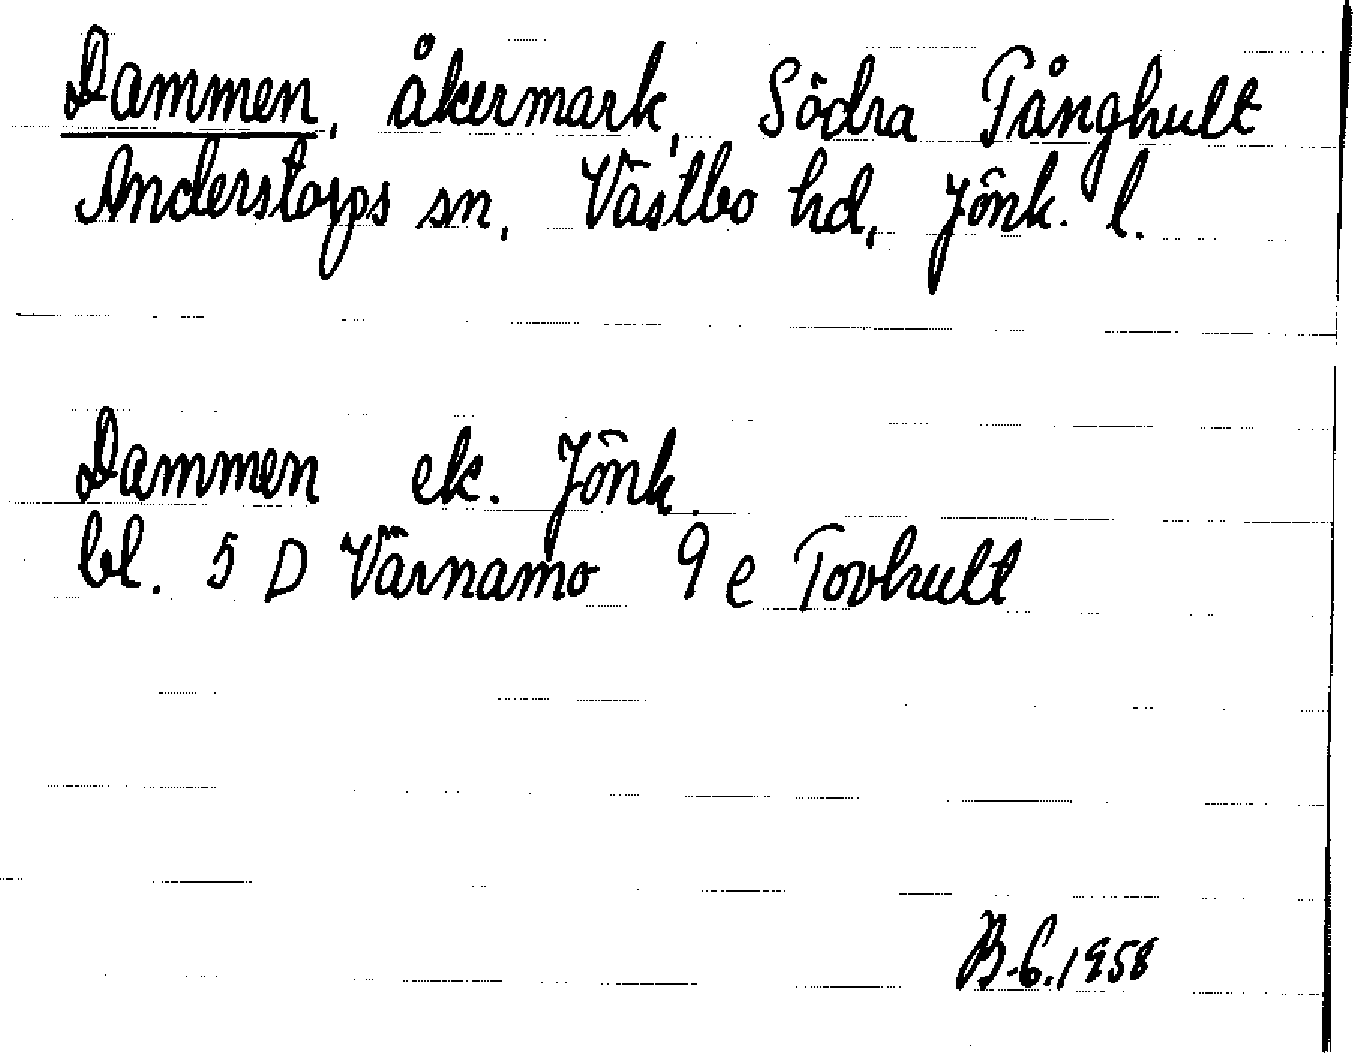 Dammen, åkermark, Södra Tånghult
Anderstorps sn, Västbo hd, Jönk. l.
Dammen ek. Jönk.
bl. 5 D Värnamo 9 e Tovhult
B-G. 1958